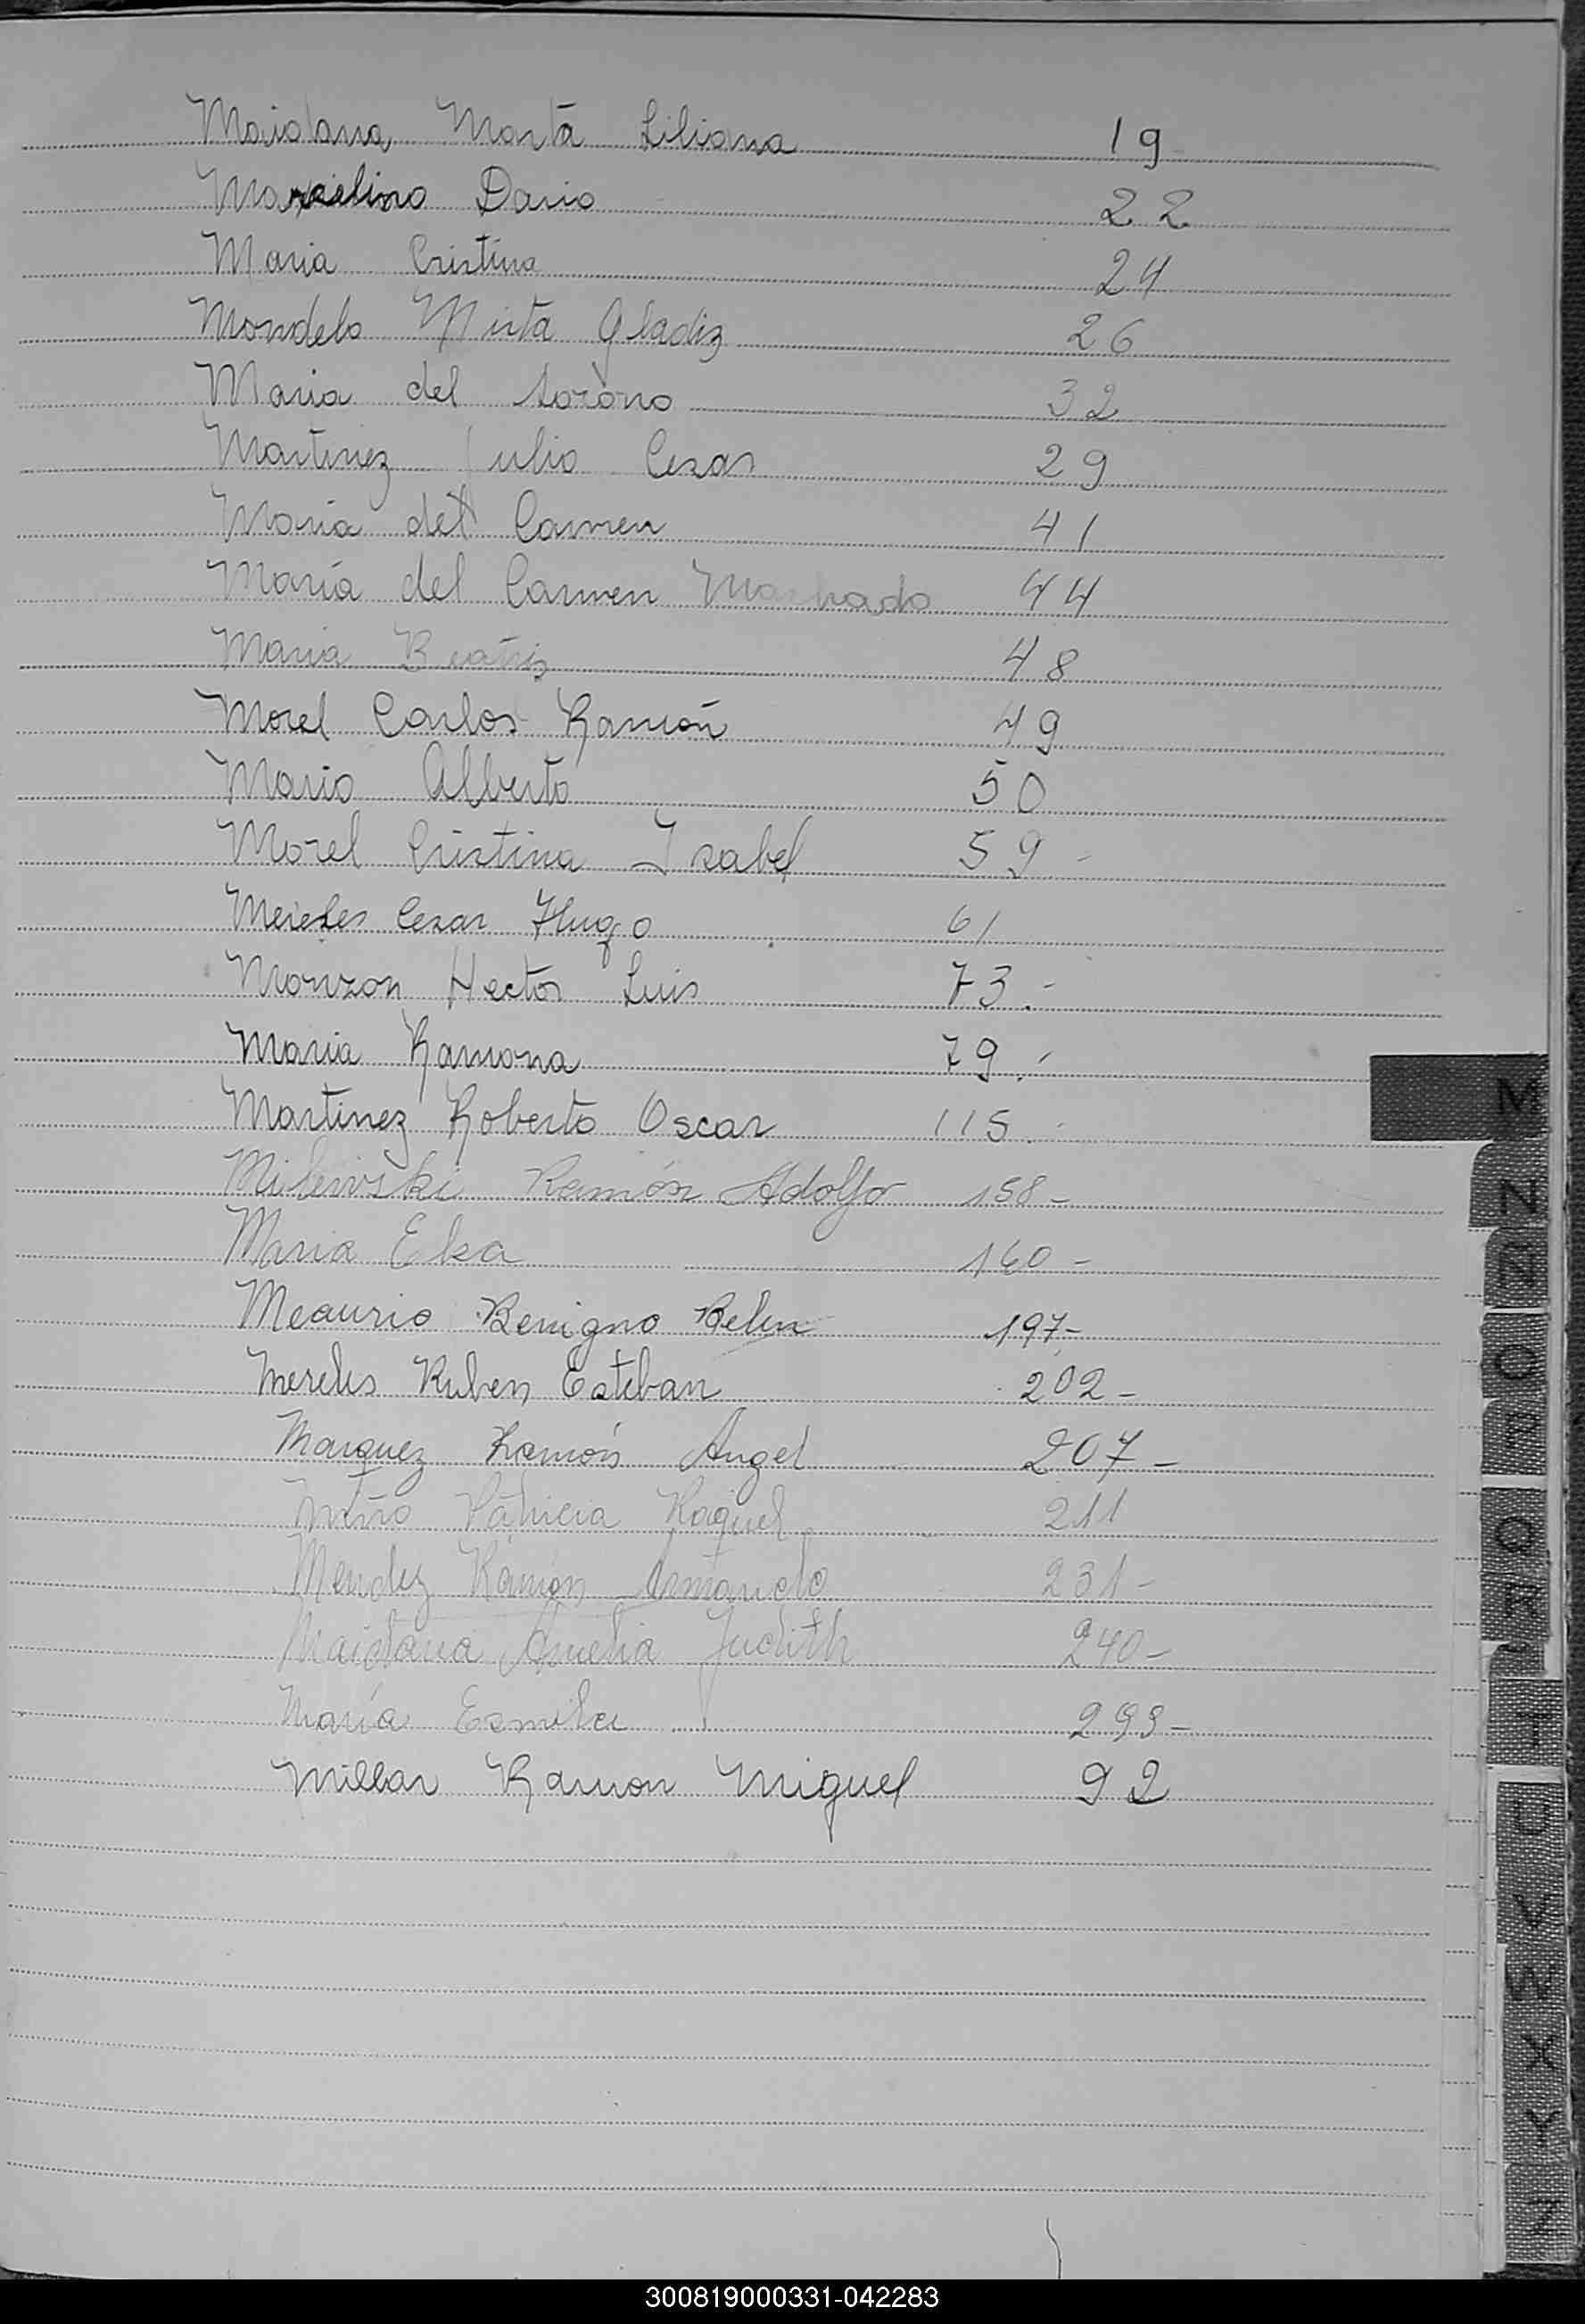 Maidana Marta Liliana 19
Marcelino Dario 22
Maria Cristina 24
Mondelo Mirta Gladiz 26
Maria del Rosorio 32
Martinez Julio Cesar 29
Maria del Carmen 41
María del Carmen Machado 44
Maria Beatris 48
Morel Carlos Ramón 49
Mario Alberto 50
Morel Cristina Isabel 59 -
Mereles Cesar Hugo 61
Monzon Hector Luis 73.-
Maria Ramona 79.-
Martinez Roberto Oscar 115.-
Milewski Ramón Adolfo 158-
Maria Elsa 160-
Meaurio Benigno Belen 197-
Mereles Ruben Esteban 202-
Marquez Ramón Angel 207-
Miño Patricia Raquel 211
Mendez Ramón Armando 231-
Maidana Amelia Judith 240-
María Esmilce 293-
Millan Ramon Miguel 92
M
N
Ñ
O
P
Q
R
S
T
U
V
W
X
Y
Z
300819000331-042283